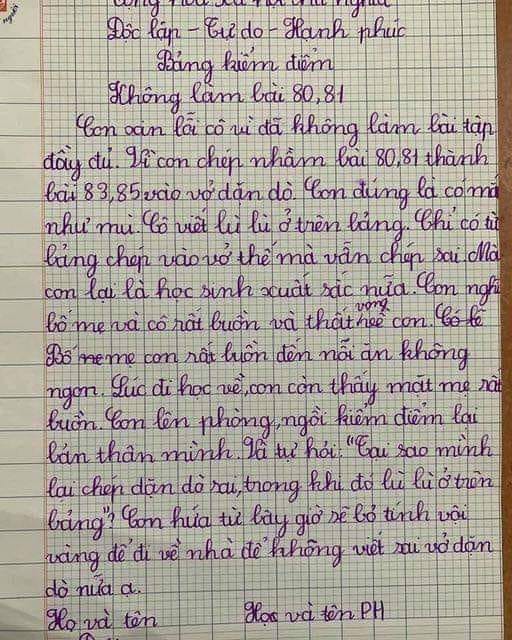 Cộng hòa xã hội chủ nghĩa
Độc lập - Tự do - Hạnh phúc
Bảng kiểm điểm
Không làm bài 80,81
Con xin lỗi cô vì đã không làm bài tập
đầy đủ. Vì con chép nhầm bài 80,81 thành
bài 83,85 vào vở dặn dò. Con đúng là có mắ
như mù. Cô viết lù lù ở trên bảng. Chỉ có từ
bảng chép vào vở thế mà vẫn chép sai. Mà
con lại là học sinh xuất sắc nữa. Con nghĩ
bố mẹ và cô rất buồn và thất vọng về con. Có lẽ
Bố mẹ con rất buồn đến nỗi ăn không
ngon. Lúc đi học về, con còn thấy mặt mẹ rất
buồn. Con lên phòng, ngồi kiểm điểm lại
bản thân mình. Và tự hỏi: "Tại sao mình
lại chép dặn dò sai, trong khi đó lù lù ở trên
bảng"? Con hứa từ bây giờ sẽ bỏ tính vội
vàng để đi về nhà để không viết sai vở dặn
dò nữa ạ.
Họ và tên Học và tên PH